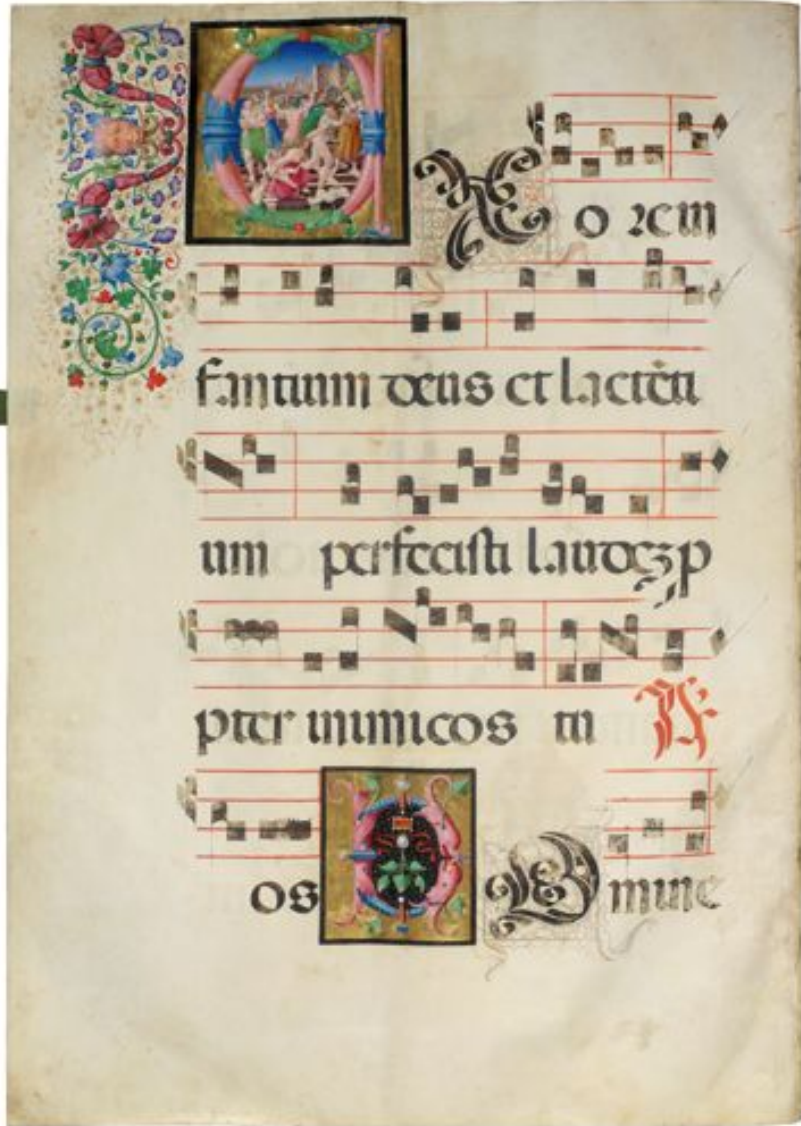 EX O RE IN
fantium deus et lactēti
um perfecisti laudeꝫ p
pter inimicos tu Ps
os D Domine